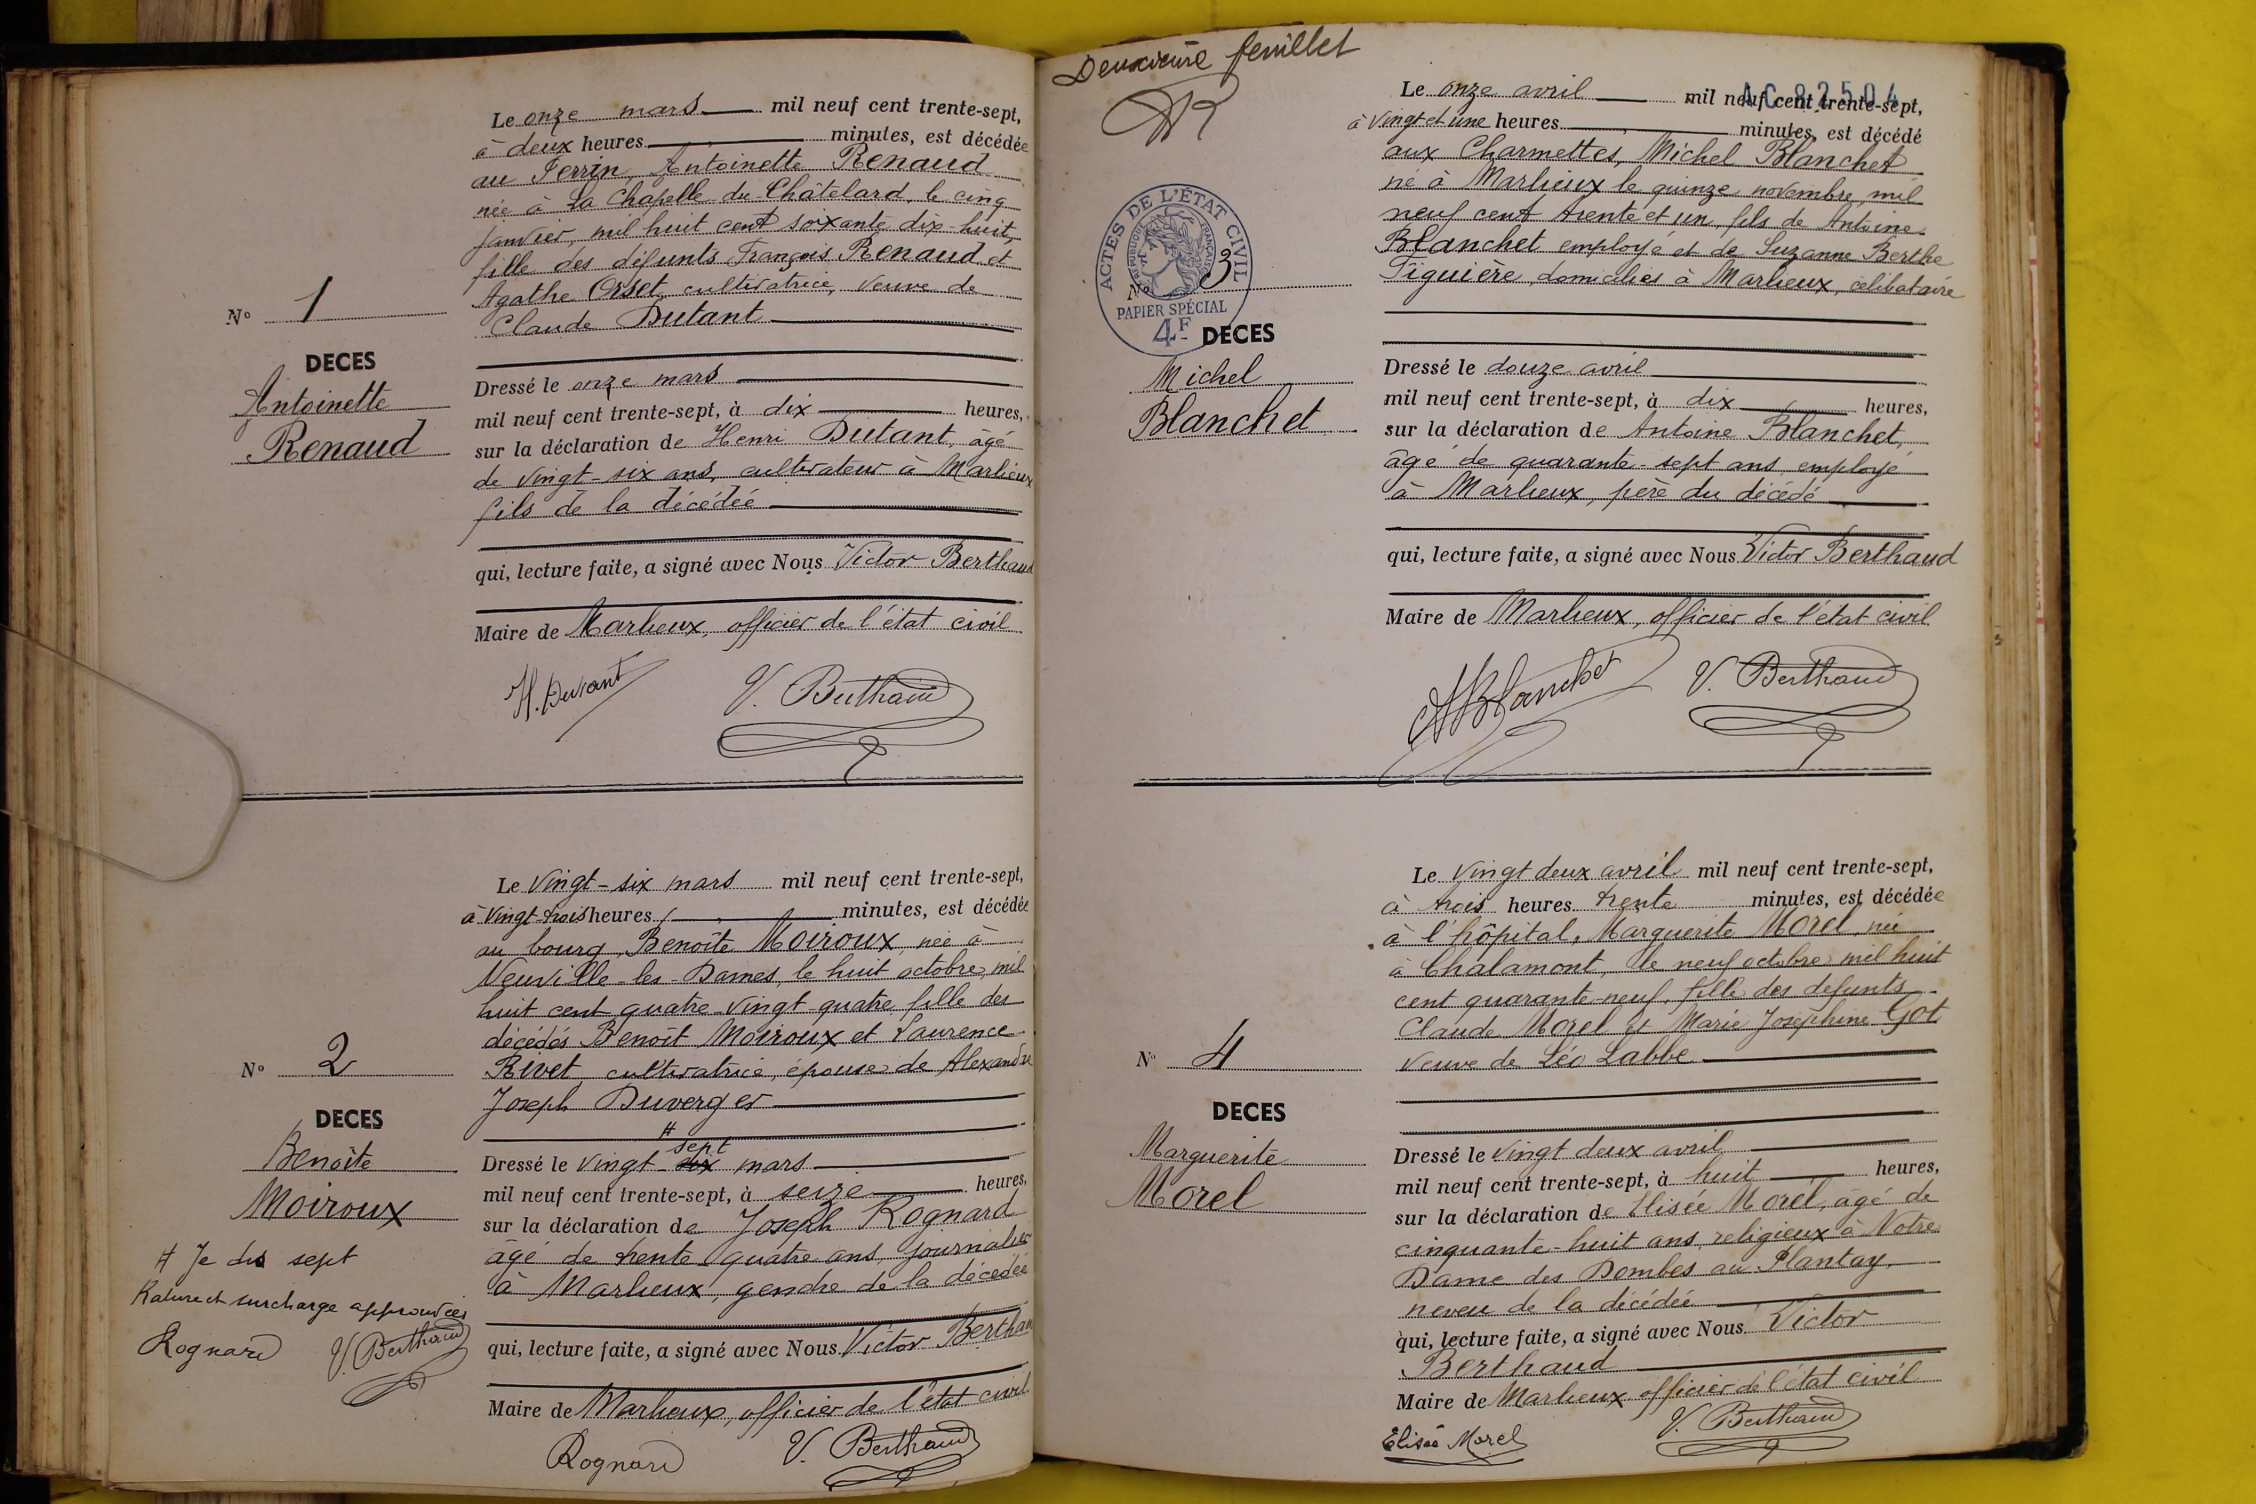 Le onze mars mil neuf cent trente-sept,
à deux heures minutes, est décédée
au Perrin, Antoinette Renaud
née à La Chapelle du Châtelard, le cinq
janvier, mil huit cent soixante dix-huit,
fille des défunts François Renaud et
Agathe Orset, cultivatrice, veuve de
Claude Dutant
N° 1
DECES
Antoinette
Renaud
Dressé le onze mars
mil neuf cent trente-sept, à dix heures,
sur la déclaration de Henri Dutant, âgé
de vingt-six ans, cultivateur à Marlieux
fils de la décédée
qui, lecture faite, a signé avec Nous Victor Berthaud
Maire de Marlieux, officier de l'état civil
V. Berthaud
Le vingt-six mars mil neuf cent trente-sept,
à vingt-trois heures minutes, est décédée
au bourg, Benoîte Moiroux, née à
Neuville-les-Dames, le huit octobre, mil
huit cent quatre-vingt-quatre, fille des
décédés Benoît Moiroux et Laurence
Rivet, cultivatrice, épouse de Alexandre
Joseph Duverger
N° 2
DECES
Benoîte
Moiroux
# sept
Dressé le vingt-six mars
mil neuf cent trente-sept, à seize heures,
sur la déclaration de Joseph Rognard
âgé de trente quatre ans, journalier
à Marlieux, gendre de la décédée
# Je dis sept
Rature et surcharge approuvées
Rognard V. Berthaud
qui, lecture faite, a signé avec Nous Victor Berthaud
Maire de Marlieux, officier de l'état civil
Rognard V. Berthaud
Deuxième feuillet
AC 82504
Le onze avril mil neuf cent trente-sept,
à vingt et une heures minutes, est décédé
aux Charmettes, Michel Blanchet
né à Marlieux le quinze novembre, mil
neuf cent trente et un, fils de Antoine
Blanchet employé et de Suzanne Berthe
Figuière, domiciliés à Marlieux, célibataire
ACTES DE L'ÉTAT CIVIL
RÉPUBLIQUE FRANÇAISE
N° 3
PAPIER SPÉCIAL
4F
DECES
Michel
Blanchet
Dressé le douze avril
mil neuf cent trente-sept, à dix heures,
sur la déclaration de Antoine Blanchet,
âgé de quarante-sept ans employé
à Marlieux, père du décédé
qui, lecture faite, a signé avec Nous Victor Berthaud
Maire de Marlieux, officier de l'état civil
ABlanchet V. Berthaud
Le vingt deux avril mil neuf cent trente-sept,
à trois heures trente minutes, est décédée
à l'hôpital, Marguerite Morel, née
à Chalamont, le neuf octobre mil huit
cent quarante-neuf, fille des défunts
Claude Morel et Marie Joséphine Got
veuve de Léo Labbe
N° 4
DECES
Marguerite
Morel
Dressé le vingt deux avril
mil neuf cent trente-sept, à huit heures,
sur la déclaration de Elisée Morel, âgé de
cinquante-huit ans, religieux à Notre
Dame des Dombes au Plantay,
neveu de la décédée
qui, lecture faite, a signé avec Nous Victor
Berthaud
Maire de Marlieux officier de l'état civil
Elisée Morel V. Berthaud